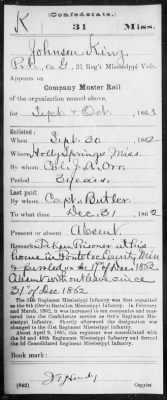 (Confederate.)
K 31 Miss.
Johnson King
Pvt., Co. G, 31 Reg't Mississippi Vols.
Appears on
Company Muster Roll
of the organization named above,
for Sept & Oct, 1863.
Enlisted:
When Sept. 30, 1862.
Where Holly Springs Miss.
By whom Col. J. A. Orr
Period 3 years.
Last paid:
By whom Capt. Butler
To what time Dec. 31, 1862
Present or absent Absent.
Remarks: Taken Prisoner at his
home in Pontotoc County, Miss
& paroled on the 17th of Dec 1862
Absent without leave since
31st Dec 1862.
The 31st Regiment Mississippi Infantry was first organized
as the 6th (Orr's) Battalion Mississippi Infantry. In February
and March, 1862, it was increased to ten companies and mustered
into the Confederate service as Orr's Regiment Mississippi
Infantry. Shortly afterward the designation was
changed to the 31st Regiment Mississippi Infantry.
About April 9, 1865, this regiment was consolidated with
the 3d and 40th Regiments Mississippi Infantry and formed
the 3d Consolidated Regiment Mississippi Infantry.
Book mark:
(642) Copyist.